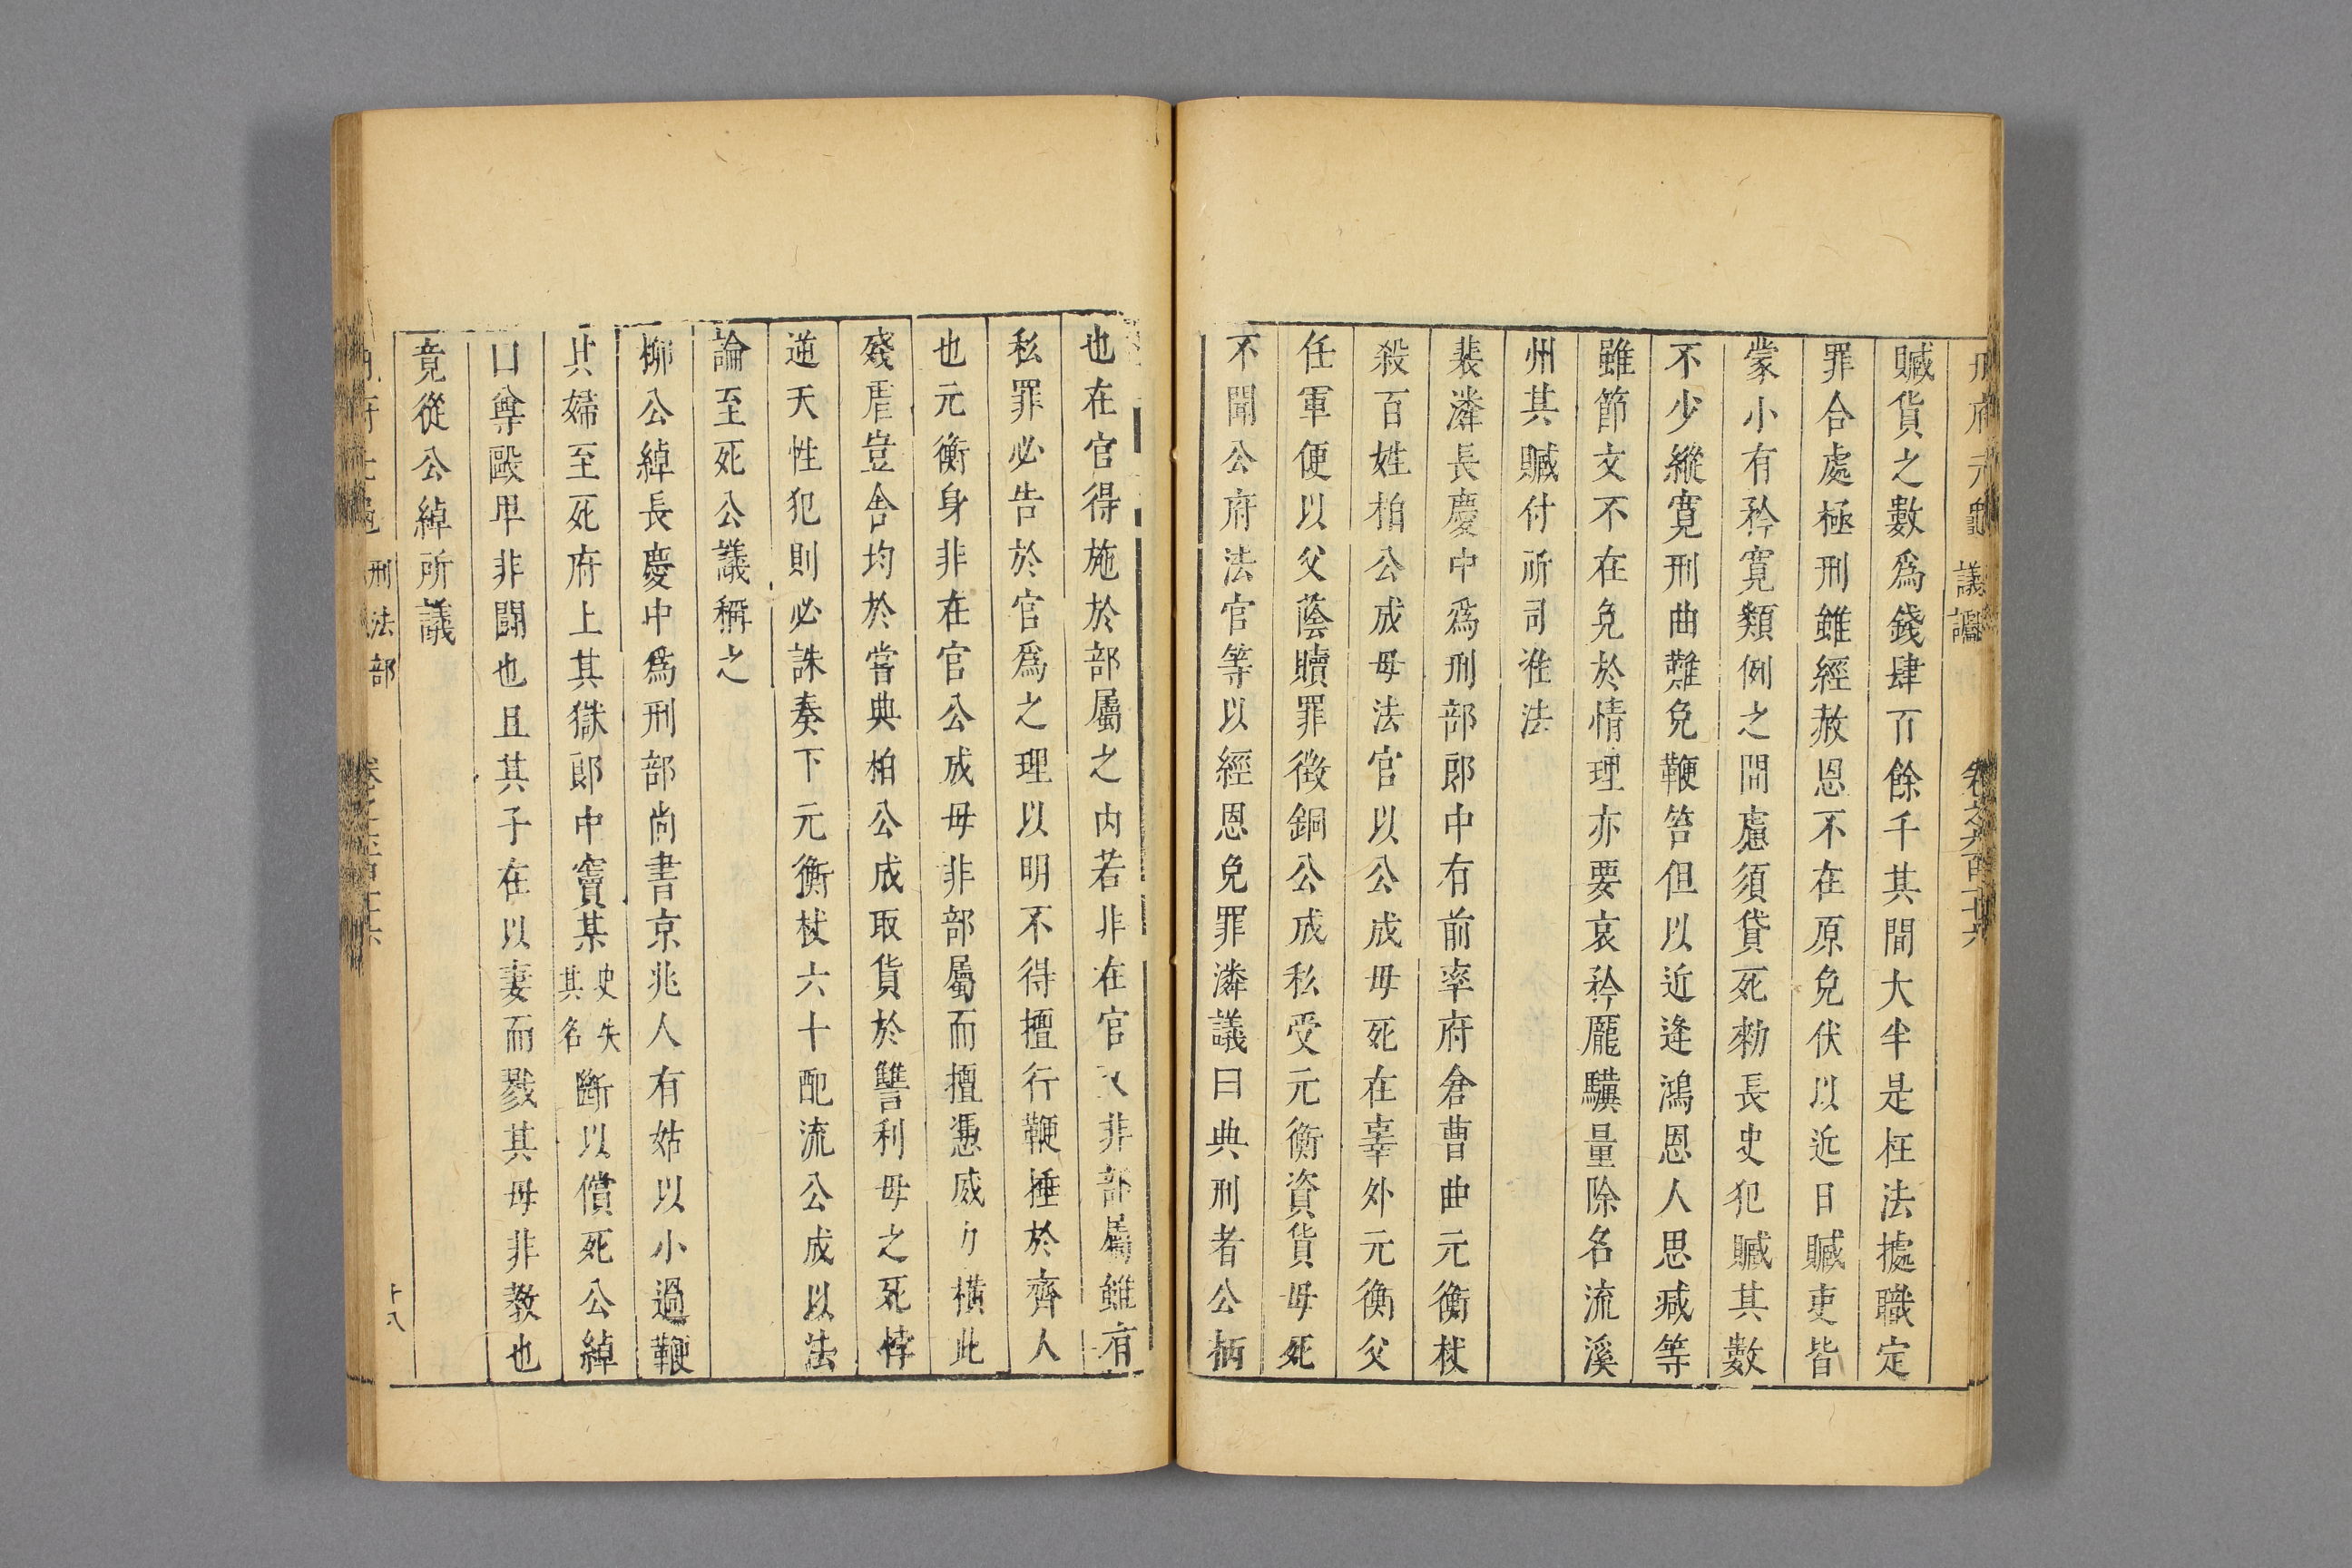 册府元龜 議讞 卷之六百十六
贓貨之數爲錢肆百餘千其間大半是枉法據職定
罪合處極刑雖經赦恩不在原免伏以近日贓吏皆
蒙小有矜寬類例之間慮須貸死勑長史犯贓其數
不少縱寬刑曲難免鞭笞但以近逢鴻恩人思減等
雖節文不在免於情理亦要哀矜龐驥量除名流溪
州其贓付所司准法
裴潾長慶中爲刑部郎中有前率府倉曹曲元衡杖
殺百姓柏公成母法官以公成母死在辜外元衡父
任軍便以父蔭贖罪徵銅公成私受元衡資貨母死
不聞公府法官等以經恩免罪潾議曰典刑者公柄
也在官得施於部屬之内若非在官又非部屬雖有
私罪必告於官爲之理以明不得擅行鞭捶於齊人
也元衡身非在官公成母非部屬而擅憑威力橫此
殘虐豈舍均於嘗典柏公成取貨於讐利母之死悖
逆天性犯則必誅奏下元衡杖六十配流公成以法
論至死公議稱之
柳公綽長慶中爲刑部尚書京兆人有姑以小過鞭
其婦至死府上其獄郎中竇某史失其名斷以償死公綽
曰尊毆卑非鬬也且其子在以妻而戮其母非教也
竟從公綽所議
刑法部
十八